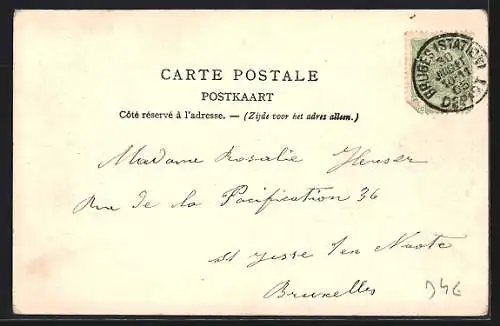 CARTE POSTALE
POSTKAART
Côté réservé à l'adresse. — (Zijde voor het adres alleen.)
BRUGES (STATION)
30
10-11
DEPART
Madame Rosalie Heuser
Rue de la Pacification 36
St Josse Ten Noote
Bruxelles